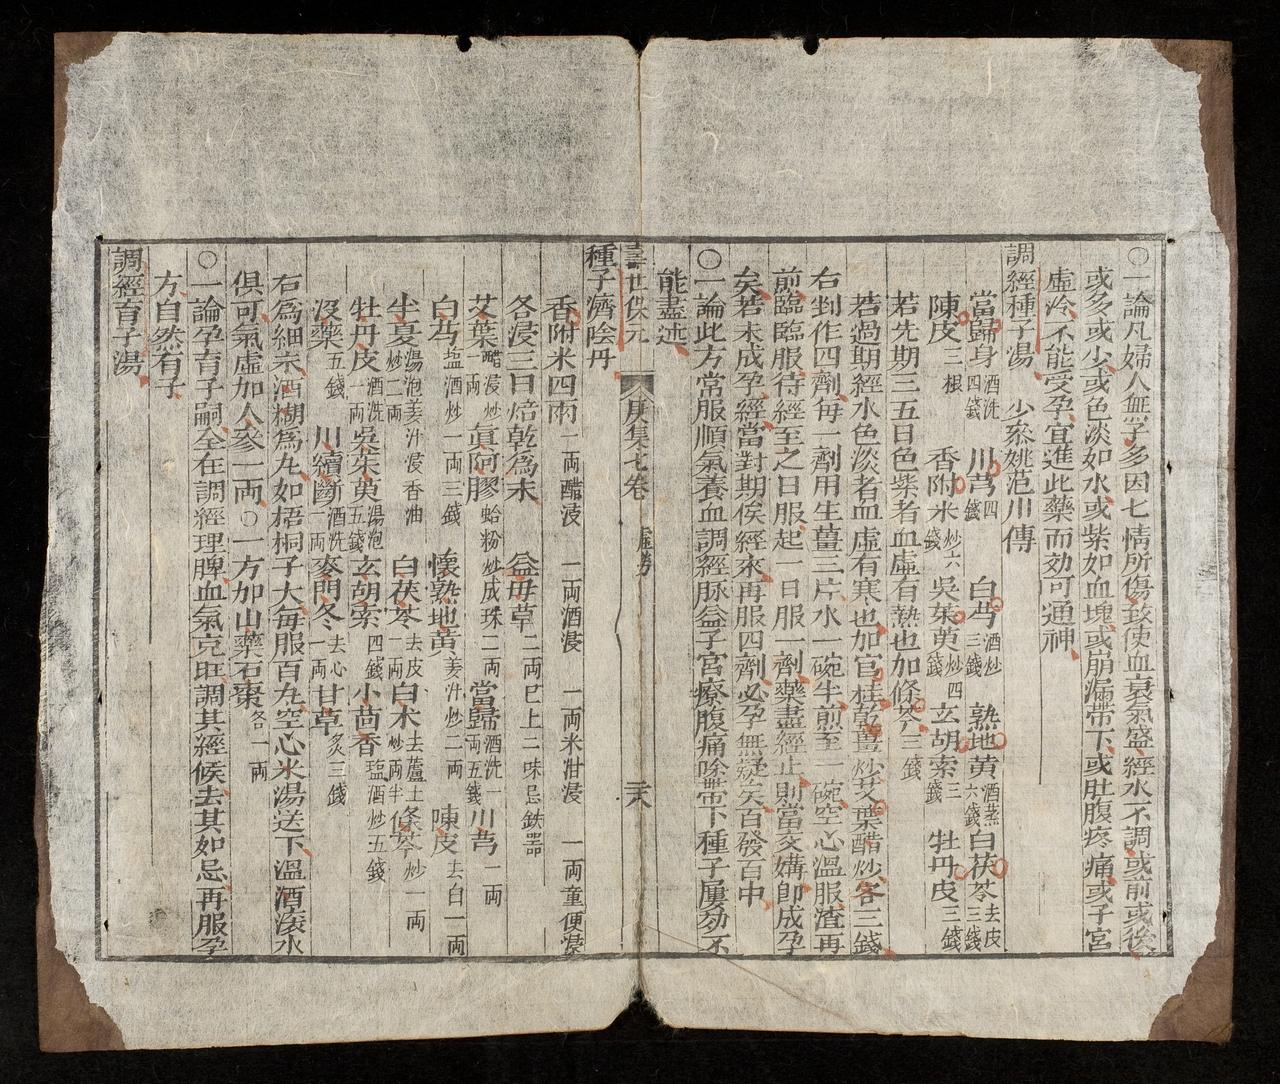 ○一論凡婦人無子多因七情所傷致使血衰氣盛經水不調或前或後
或多或少或色淡如水或紫如血塊或崩漏帶下或肚腹疼痛或子宮
虛冷不能受孕宜進此藥而効可通神
調經種子湯 少參姚范川傳
當歸身酒洗四錢 川芎四錢 白芍酒炒三錢 熟地黃酒蒸六錢 白茯苓去皮三錢
陳皮三根 香附米炒六錢 吳茱萸炒四錢 玄胡索三錢 牡丹皮三錢
若先期三五日色紫者血虛有熱也加條芩三錢
若過期經水色淡者血虛有寒也加官桂乾薑炒艾葉醋炒各三錢
右剉作四劑每一劑用生薑三片水一碗半煎至一碗空心溫服渣再
前臨臨服待經至之日服起一日服一劑藥盡經止則當交媾卽成孕
矣若未成孕經當對期俟經來再服四劑必孕無疑矣百發百中
○一論此方常服順氣養血調經脉益子宮療腹痛除帶下種子屢効不
能盡述
壽世保元 庚集七卷 虛勞 三六
種子濟陰丹
香附米四兩一両醋浸 一両酒浸 一両米泔浸 一両童便浸
各浸三日焙乾爲末 益母草二両已上二味忌鉄器
艾葉醋浸炒両 眞阿膠蛤粉炒成珠二両 當歸酒洗一両五錢 川芎一両
白芍塩酒炒一両三錢 懷熟地黃姜汁炒二両 陳皮去白一両
半夏湯泡姜汁浸香油炒二両 白茯苓去皮一両 白朮去蘆土炒一両半 條芩炒一両
牡丹皮酒洗一両 吳茱萸湯泡五錢 玄胡索四錢 小茴香塩酒炒五錢
沒藥五錢 川續斷酒洗一両 麥門冬去心一両 甘草炙三錢
右爲細末酒糊爲丸如梧桐子大每服百丸空心米湯送下溫酒滾水
俱可氣虛加人參一両○一方加山藥石棗各一両
○一論孕育子嗣全在調經理脾血氣充旺調其經候去其如忌再服孕
方自然有子
調經育子湯